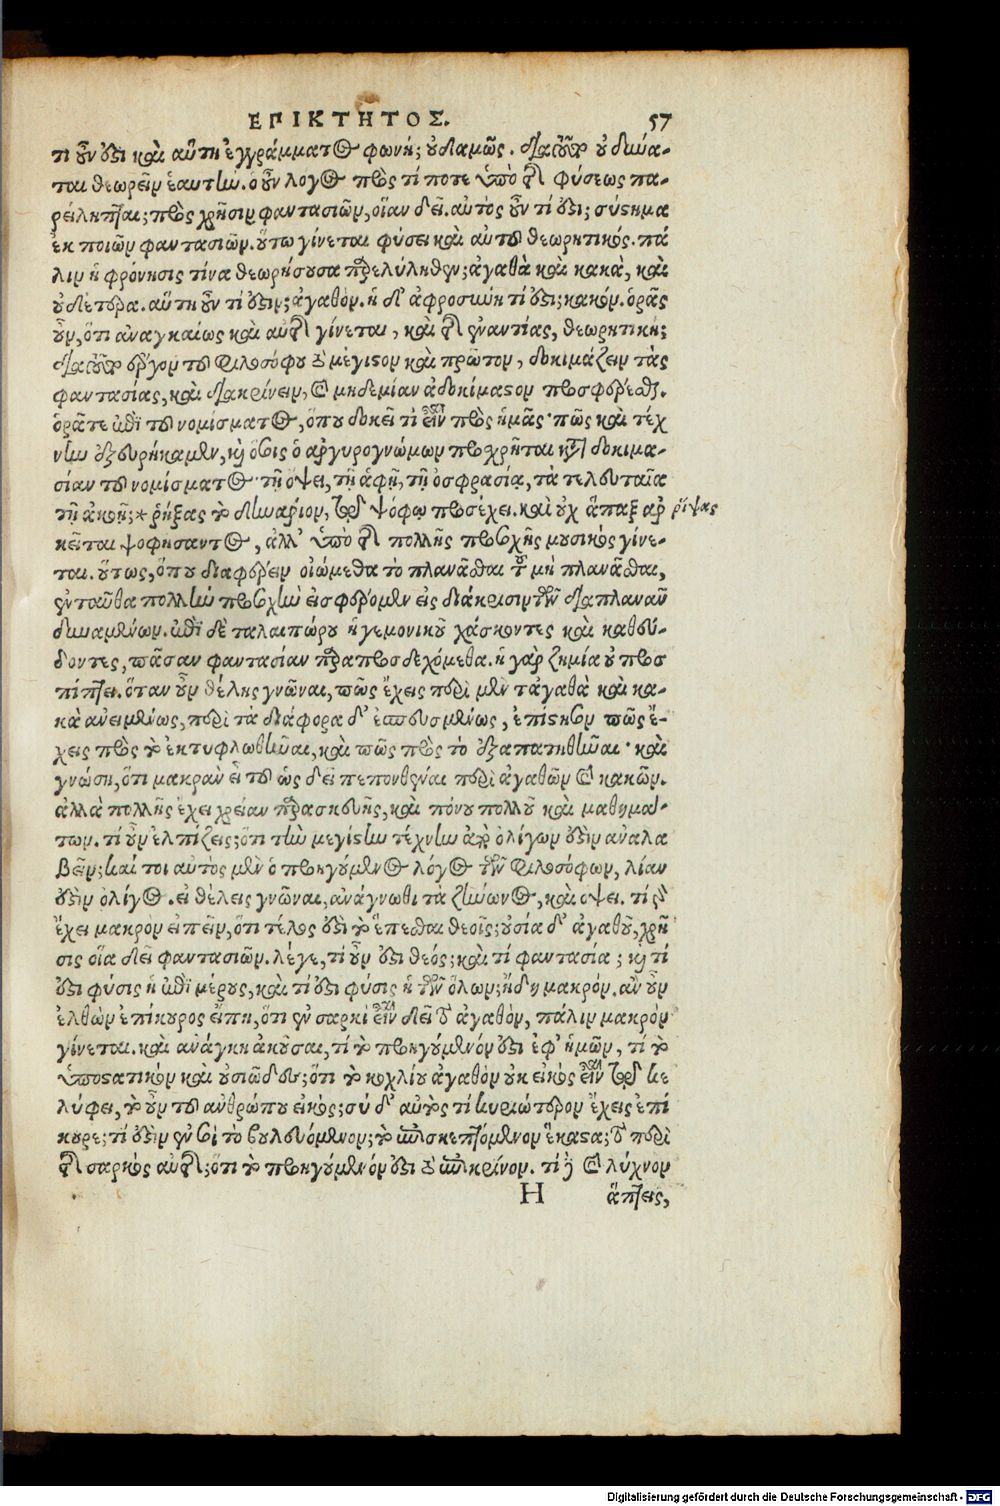 ΕΠΙΚΤΗΤΟΣ. 57
τι οὖν ὅτι καὶ αὕτη ἐγγράμματος φωνή; οὐδαμῶς. διατοῦτο οὐ δύνα-
ται θεωρεῖν ἑαυτήν. ὁ οὖν λόγος πρὸς τί ποτε ὑπὸ τῆς φύσεως πα-
ρείληπται; πρὸς χρῆσιν φαντασιῶν, οἵαν δεῖ. αὐτὸς οὖν τί ἐστι; σύστημα
ἐκ ποιῶν φαντασιῶν. οὕτω γίνεται φύσει καὶ αὐτοῦ θεωρητικός. πά
λιν ἡ φρόνησις τίνα θεωρήσουσα παρελήλυθεν; ἀγαθὰ καὶ κακὰ, καὶ
οὐδέτερα. αὕτη οὖν τί ἐστιν; ἀγαθόν. ἡ δ' ἀφροσύνη τί ἐστι; κακόν. ὁρᾷς
οὖν, ὅτι ἀναγκαίως καὶ αὑτῆς γίνεται, καὶ τῆς ἐναντίας, θεωρητική;
διατοῦτο ἔργον τοῦ φιλοσόφου τὸ μέγιστον καὶ πρῶτον, δοκιμάζειν τὰς
φαντασίας, καὶ διακρίνειν, καὶ μηδεμίαν ἀδοκίμαστον προσφέρεσθαι.
ὁρᾶτε ἐπὶ τοῦ νομίσματος, ὅπου δοκεῖ τὶ εἶναι πρὸς ἡμᾶς· πῶς καὶ τέχ
νην ἐξευρήκαμεν, καὶ ὅσοις ὁ ἀργυρογνώμων προσχρῆται πρὸς δοκιμα-
σίαν τοῦ νομίσματος· τῇ ὄψει, τῇ ἁφῇ, τῇ ὀσφρασίᾳ, τὰ τελευταῖα
τῇ ἀκοῇ; * ῥήξας τὸ δηνάριον, τῷ ψόφῳ προσέχει. καὶ οὐχ ἅπαξ ἀρ ῥίψας
κεῖται ψοφήσαντος, ἀλλ' ὑπὸ τῆς πολλῆς προσοχῆς μουσικὸς γίνε-
ται. οὕτως, ὅπου διαφέρειν οἰώμεθα τὸ πλανᾶσθαι τοῦ μὴ πλανᾶσθαι,
ἐνταῦθα πολλὴν προσοχὴν εἰσφέρομεν εἰς διάκρισιν τῶν διαπλανᾶν
δυναμένων. ἐπὶ δὲ ταλαιπώρου ἡγεμονικοῦ χάσκοντες καὶ καθεύ-
δοντες, πᾶσαν φαντασίαν παραπροσδεχόμεθα. ἡ γὰρ ζημία οὐ προσ
πίπτει. ὅταν οὖν θέλῃς γνῶναι, πῶς ἔχεις περὶ μὲν τἀγαθὰ καὶ κα-
κὰ ἀνειμένως, περὶ τὰ διάφορα δ' ἐσπευσμένως, ἐπίστησον πῶς ἔ-
χεις πρὸς τὸ ἐκτυφλωθῆναι, καὶ πῶς πρὸς τὸ ἐξαπατηθῆναι· καὶ
γνώσῃ, ὅτι μακρὰν εἶ τοῦ ὡς δεῖ πεπονθέναι περὶ ἀγαθῶν καὶ κακῶν.
ἀλλὰ πολλῆς ἔχει χρείαν παρασκευῆς, καὶ πόνου πολλοῦ καὶ μαθημά-
των. τί οὖν ἐλπίζεις; ὅτι τὴν μεγίστην τέχνην ἀπὸ ὀλίγων ἔστιν ἀναλα
βεῖν; καί τοι αὐτὸς μὲν ὁ προηγούμενος λόγος τῶν φιλοσόφων, λίαν
ἐστὶν ὀλίγος. εἰ θέλεις γνῶναι, ἀνάγνωθι τὰ ζήνωνος, καὶ ὄψει. τί γὰρ
ἔχει μακρὸν εἰπεῖν, ὅτι τέλος ἐστὶ τὸ ἕπεσθαι θεοῖς; οὐσία δ' ἀγαθοῦ, χρῆ
σις οἵα δεῖ φαντασιῶν. λέγε, τί οὖν ἐστι θεός; καὶ τί φαντασία; καὶ τί
ἐστι φύσις ἡ ἐπὶ μέρους, καὶ τί ἐστι φύσις ἡ τῶν ὅλων; ἤδη μακρόν. ἂν οὖν
ἐλθὼν ἐπίκουρος εἴπῃ, ὅτι ἐν σαρκὶ εἶναι δεῖ τὸ ἀγαθὸν, πάλιν μακρὸν
γίνεται. καὶ ἀνάγκη ἀκοῦσαι, τί τὸ προηγούμενόν ἐστι ἐφ' ἡμῶν, τί τὸ
ὑποστατικὸν καὶ οὐσιῶδες; ὅτι τὸ κοχλίου ἀγαθὸν οὐκ εἰκὸς εἶναι τῷ κε
λύφει, τὸ οὖν τοῦ ἀνθρώπου εἰκός; σὺ δ' αὐτὸς τί κυριώτερον ἔχεις ἐπί
κουρε; τί ἐστιν ἐν σοὶ τὸ βουλευόμενον; τὸ ἐπισκεπτόμενον ἕκαστα; τὸ περὶ
τῆς σαρκὸς αὐτῆς; ὅτι τὸ προηγούμενόν ἐστι τὸ ἐπικρῖνον. τί δὲ καὶ λύχνον
Η ἅπτεις,
Digitalisierung gefördert durch die Deutsche Forschungsgemeinschaft - DFG